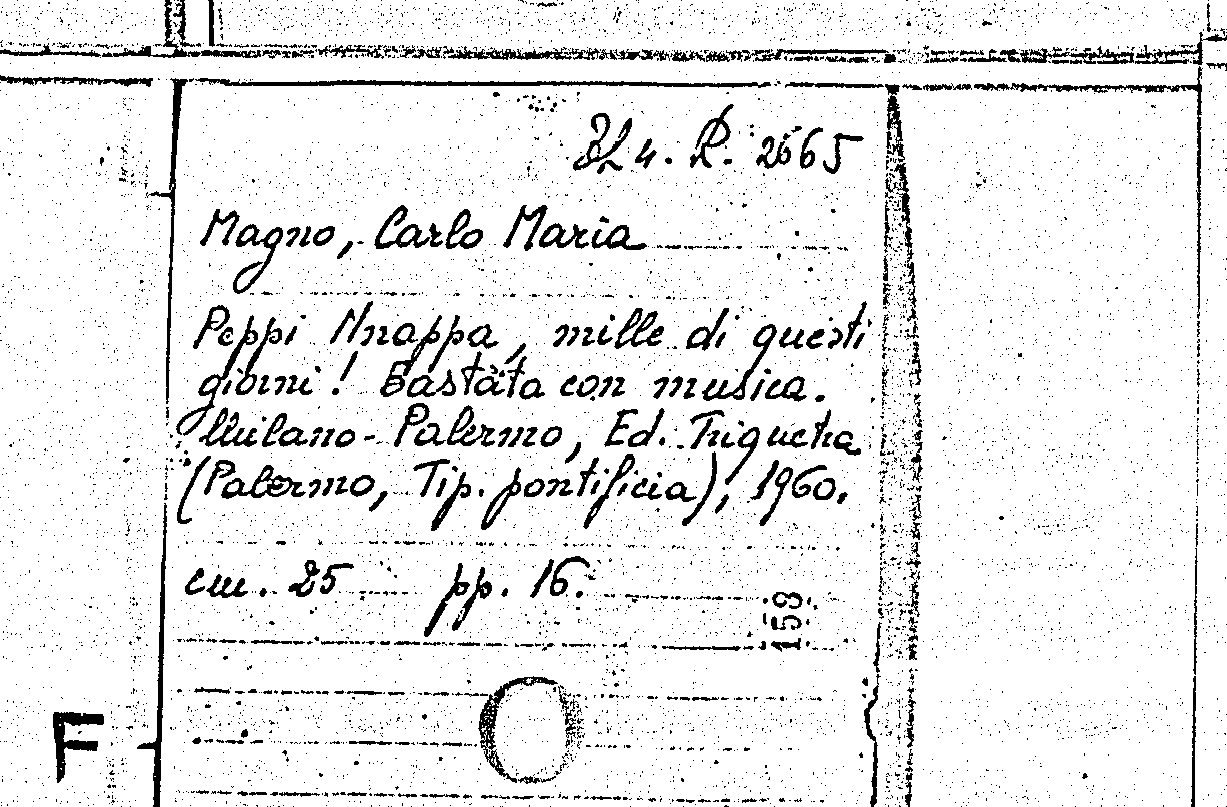 4. P. 2665
Magno, Carlo Maria
Peppi Nnappa, mille di questi
giorni! Bastata con musica.
Milano - Palermo, Ed. Triquetra
(Palermo, Tip. pontificia), 1960.
cm. 25 pp. 16.
159
F